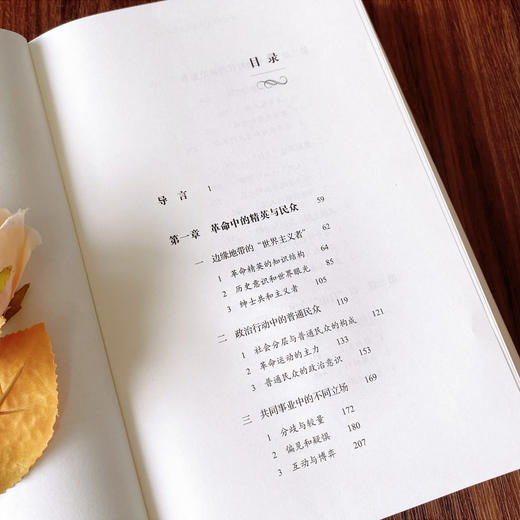 目 录
导 言 1
第一章 革命中的精英与民众 59
一 边缘地带的“世界主义者” 62
1 革命精英的知识结构 64
2 历史意识和世界眼光 85
3 绅士共和主义者 105
二 政治行动中的普通民众 119
1 社会分层与普通民众的构成 121
2 革命运动的主力 133
3 普通民众的政治意识 153
三 共同事业中的不同立场 169
1 分歧与较量 172
2 偏见和疑惧 180
3 互动与博弈 207